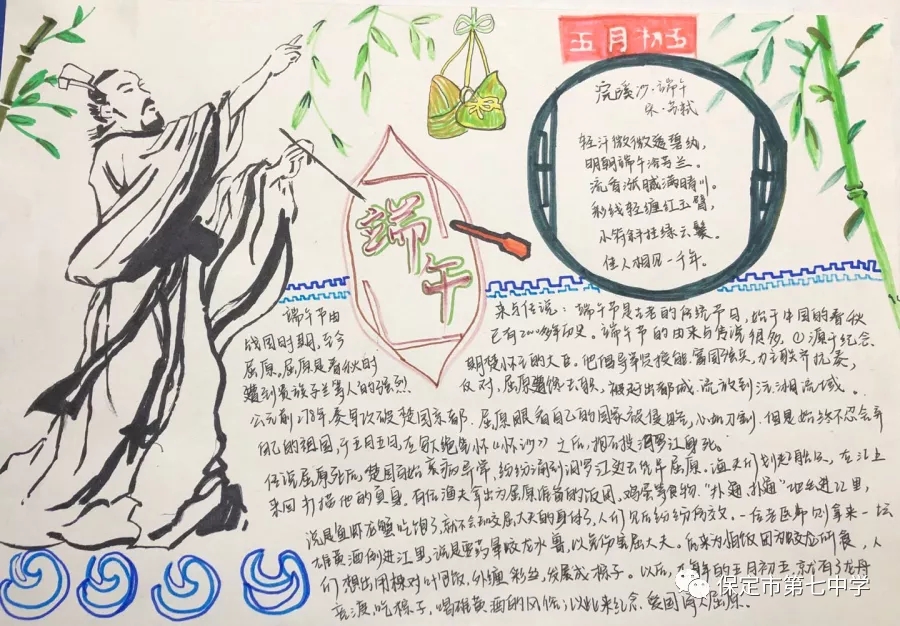 五月初五
浣溪沙·端午
宋·苏轼
轻汗微微透碧纨，
明朝端午浴芳兰。
流香涨腻满晴川。
彩线轻缠红玉臂，
小符斜挂绿云鬟。
佳人相见一千年。
端午
端午节由
战国时期，至今
屈原。屈原是春秋时
遭到贵族子兰等人的强烈
来与传说：端午节是古老的传统节日，始于中国的春秋
已有2000多年历史。端午节的由来与传说很多，①源于纪念
期楚怀王的大臣。他倡导举贤授能，富国强兵，力主联齐抗秦，
反对，屈原遭馋去职，被赶出都城，流放到沅湘流域。
公元前278年秦军攻破楚国京都．屈原眼看自己的国家被侵略，心如刀割．但是始终不忍舍弃
自己的祖国，于五月五日，在写下绝笔作《怀沙》之后，抱石投汨罗江身死。
传说屈原死后，楚国百姓哀痛异常，纷纷涌到汨罗江边去凭吊屈原．渔夫们划起船只，在江上
来回打捞他的真身．有位渔夫拿出为屈原准备的饭团，鸡蛋等食物．“扑通，扑通”地丢进江里，
说是鱼虾龙蟹吃饱了，就不会咬屈大夫的身体了，人们见后纷纷仿效．一位老医师则拿来一坛
雄黄酒倒进江里，说是要药晕蛟龙水兽，以免伤害屈大夫。后来为怕饭团为蛟龙所食，人
们想出用楝树叶包饭，外缠彩丝，发展成粽子。以后，在每年的五月初五，就有了龙舟
竞渡，吃粽子，喝雄黄酒的风俗；以此来纪念爱国诗人屈原．
保定市第七中学